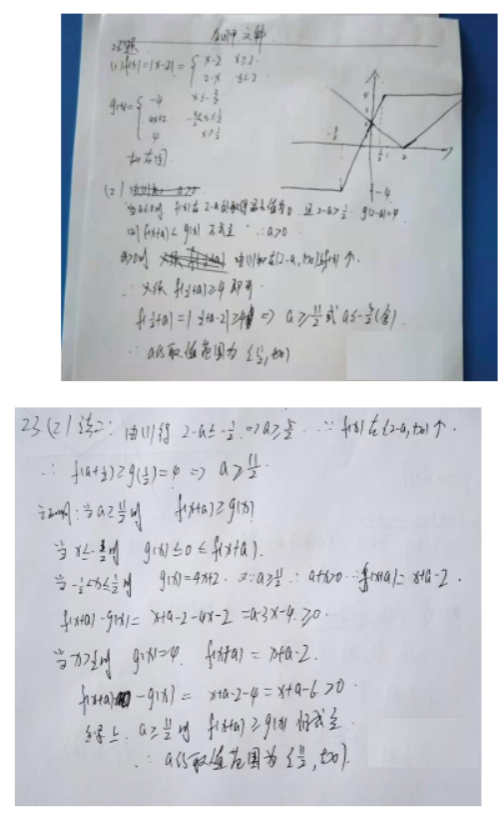 23题
(1) f(x)=|x-2|={ x-2 x≥2
2-x x<2
g(x)={ -4 x≤-3/2
4x+2 -3/2<x<1/2
4 x≥1/2
如右图.
(2)
当a≤0时 f(x)在2-a处取得最小值为0 且2-a>1/2 g(2-a)=4
f(x+a)≥g(x) 不成立 ∴a>0
a>0时 由(1)知在[2-a,+∞)上f(x)↑.
∴只须 f(1/2+a)≥4 即可
f(1/2+a)=|1/2+a-2|≥4 => a≥11/2 或 a≤-5/2(舍)
∴a的取值范围为[11/2,+∞)
23(2)法二: 由(1)得 2-a≤-1/2 => a≥5/2 ∵f(x)在[2-a,+∞)↑.
∴f(a+1/2)≥g(1/2)=4 => a≥11/2.
证明:当a≥11/2时 f(x+a)≥g(x)
当x≤-1/2时 g(x)≤0≤f(x+a).
当-1/2<x≤1/2时 g(x)=4x+2. ∵a≥11/2 ∴a+x>0 ∴f(x+a)=x+a-2.
f(x+a)-g(x)=x+a-2-4x-2=a-3x-4≥0.
当x>1/2时 g(x)=4. f(x+a)=x+a-2.
f(x+a)-g(x)=x+a-2-4=x+a-6>0.
综上. a≥11/2时 f(x+a)≥g(x)恒成立.
∴a的取值范围为[11/2,+∞).